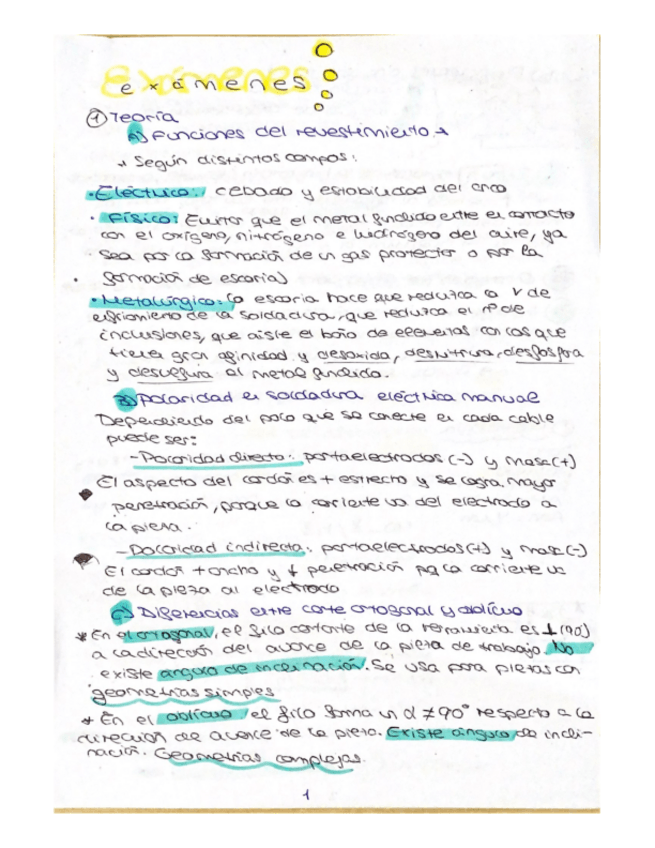 exámenes
① Teoría
A) Funciones del revestimiento →
→ Según distintos campos:
· Eléctrico: cebado y estabilidad del arco
· Físico: Evitar que el metal fundido entre en contacto
con el oxígeno, nitrógeno e hidrógeno del aire, ya
sea por la formación de un gas protector o por la
formación de escoria)
· Metalúrgico: la escoria hace que reduzca la V de
enfriamiento de la soldadura, que reduzca el nº de
inclusiones, que aisle el baño de elementos con los que
tienen gran afinidad y desoxida, desnitrura, desfosfora
y desulfura al metal fundido.
B) Polaridad en soldadura eléctrica manual
Dependiendo del polo que se conecte en cada cable
puede ser:
- Polaridad directa: portaelectrodos (-) y masa (+)
El aspecto del cordón es + estrecho y se logra mayor
penetración, porque la corriente va del electrodo a
la pieza.
- Polaridad indirecta: portaelectrodos (+) y masa (-)
El cordón + ancho y ↓ penetración pq la corriente va
de la pieza al electrodo
C) Diferencias entre corte ortogonal y oblicuo
* En el ortogonal, el filo cortante de la herramienta es ⊥ (90)
a la dirección del avance de la pieza de trabajo. No
existe angulo de inclinación. Se usa para piezas con
geometrías simples
* En el oblicuo, el filo forma un α ≠ 90° respecto a la
dirección de avance de la pieza. Existe ángulo de incli-
nación. Geometrías complejas.
1